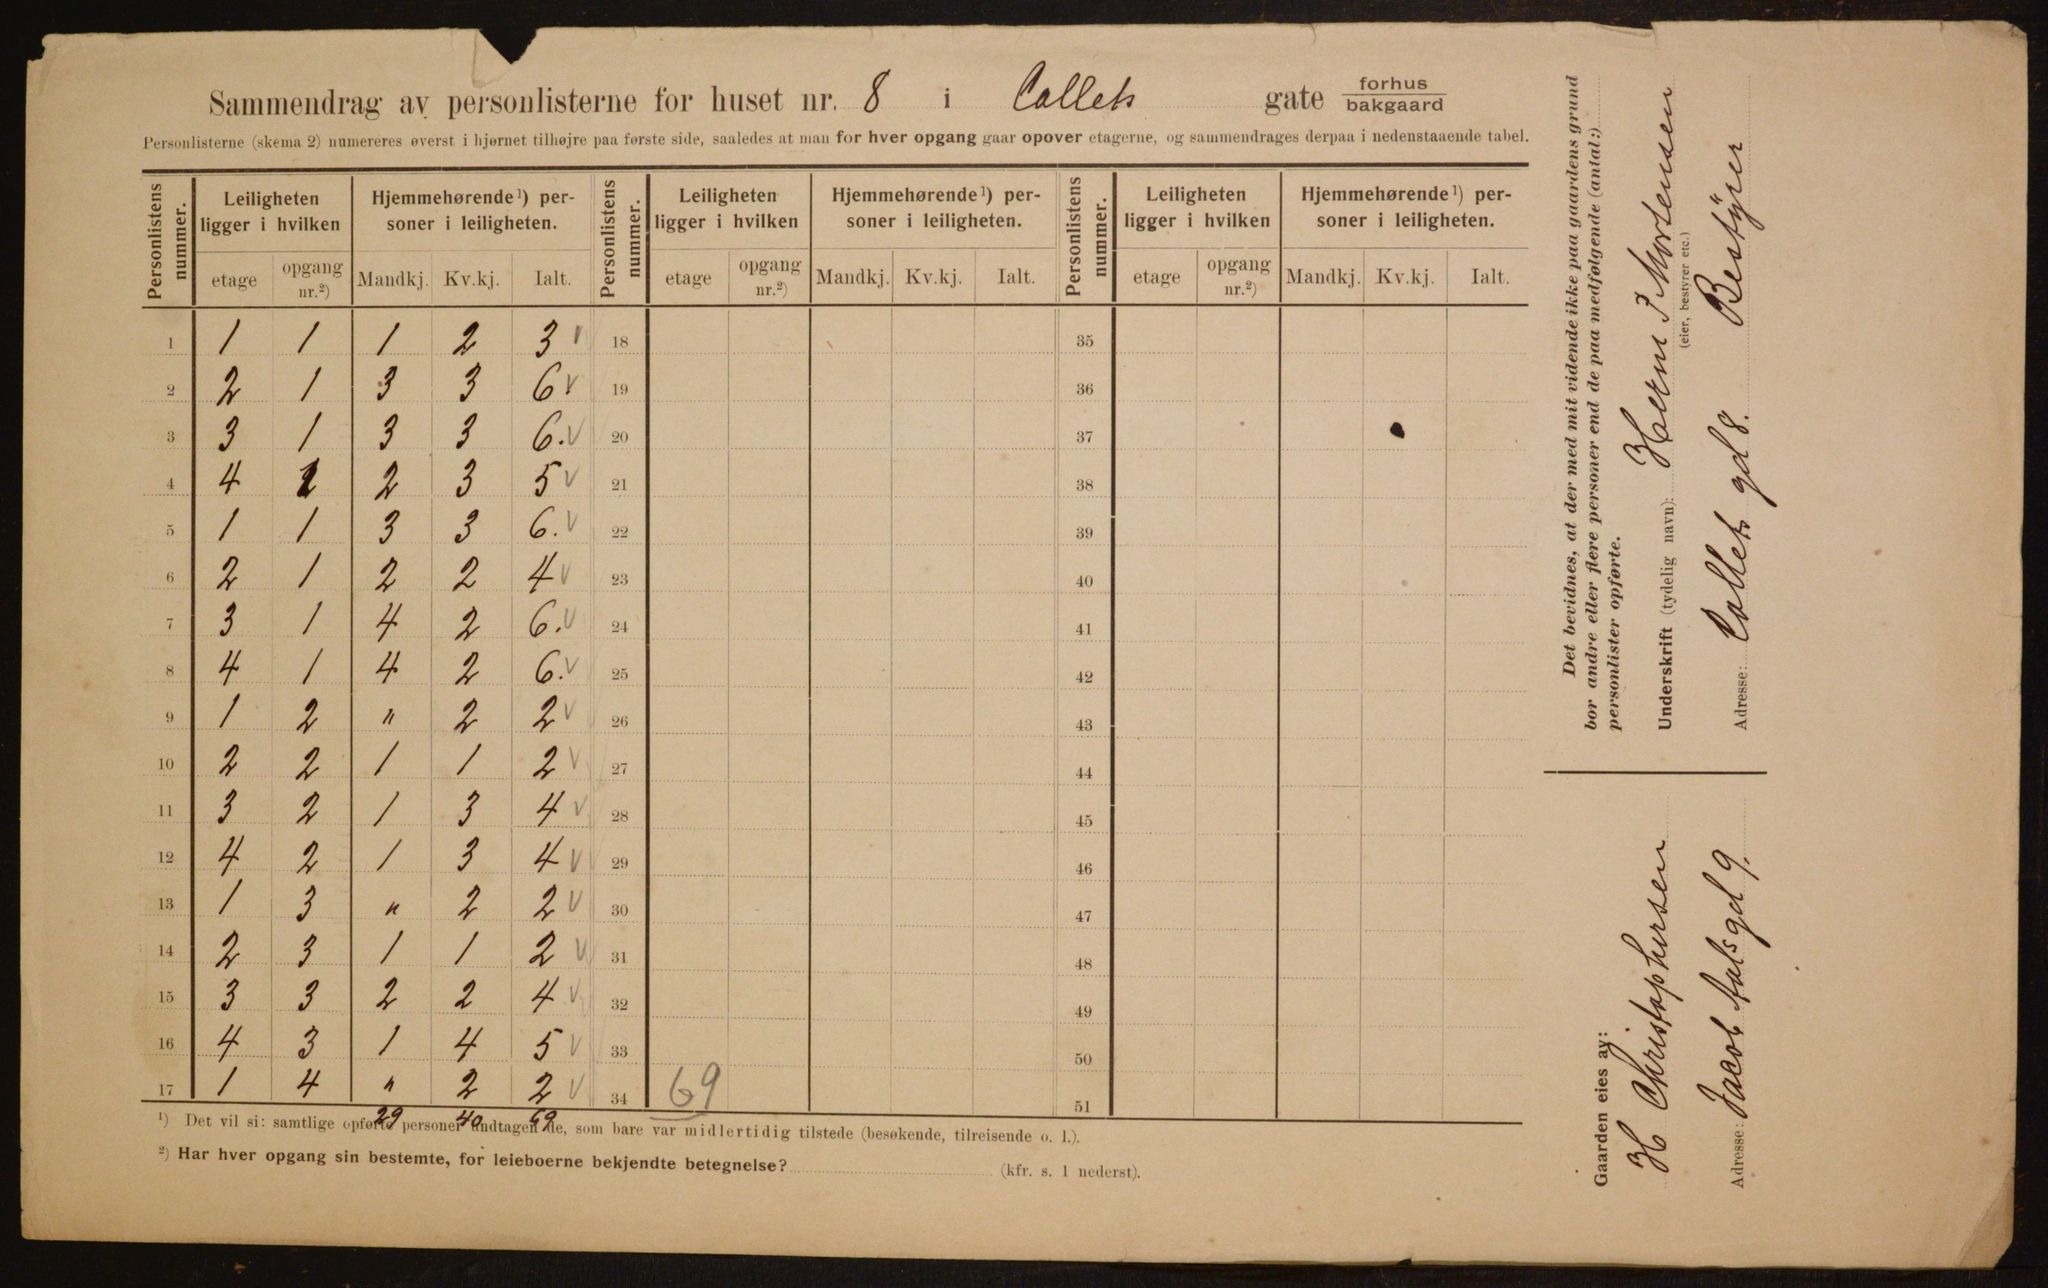 Sammendrag av personlisterne for huset nr. 8 i Collets gate forhus / bakgaard
Personlisterne (skema 2) numereres øverst i hjørnet tilhøjre paa første side, saaledes at man for hver opgang gaar opover etagerne, og sammendrages derpaa i nedenstaaende tabel.
Personlistens nummer. Leiligheten ligger i hvilken Hjemmehørende¹) personer i leiligheten. Personlistens nummer. Leiligheten ligger i hvilken Hjemmehørende¹) personer i leiligheten. Personlistens nummer. Leiligheten ligger i hvilken Hjemmehørende¹) personer i leiligheten.
etage opgang nr.²) Mandkj. Kv.kj. Ialt. etage opgang nr.²) Mandkj. Kv.kj. Ialt. etage opgang nr.²) Mandkj. Kv.kj. Ialt.
1 1 1 1 2 3 v 18 35
2 2 1 3 3 6. v 19 36
3 3 1 3 3 6. v 20 37
4 4 1 2 3 5 v 21 38
5 1 1 3 3 6. v 22 39
6 2 1 2 2 4 v 23 40
7 3 1 4 2 6. v 24 41
8 4 1 4 2 6. v 25 42
9 1 2 " 2 2 v 26 43
10 2 2 1 1 2 v 27 44
11 3 2 1 3 4 v 28 45
12 4 2 1 3 4 v 29 46
13 1 3 " 2 2 v 30 47
14 2 3 1 1 2 v 31 48
15 3 3 2 2 4 v 32 49
16 4 3 1 4 5 v 33 50
17 1 4 " 2 2 v 34 69 51
29 40 69
¹) Det vil si: samtlige opførte personer undtagen de, som bare var midlertidig tilstede (besøkende, tilreisende o. l.).
²) Har hver opgang sin bestemte, for leieboerne bekjendte betegnelse? (kfr. s. 1 nederst).
Det bevidnes, at der med mit vidende ikke paa gaardens grund
bor andre eller flere personer end de paa medfølgende (antal:)
personlister opførte.
Underskrift (tydelig navn): Herm J. Mortensen
(eier, bestyrer etc.)
Adresse: Collets gd 8. Bestyrer
Gaarden eies av:
H Christophersen
Adresse: Jacob Aalsgd 9.